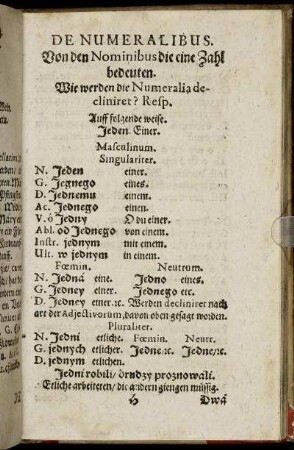 DE NUMERALIBUS.
Von den Nominibus die eine Zahl
bedeuten.
Wie werden die Numeralia de-
cliniret? Resp.
Auff folgende weise.
Jeden Einer.
Masculinum.
Singulariter.
N. Jeden einer.
G. Jegnego eines.
D. Jednemu einem.
Ac. Jednego einen.
V. ó jedny O du einer.
Abl. od Jednego von einem.
Instr. jednym mit einem.
Ult. w jednym in einem.
Fœmin. Neutrum.
N. Jedná eine. Jedno eines.
G. Jedney einer. Jednego etc.
D. Jedney einer.ꝛc. Werden decliniret nach
art der Adjectivorum, davon oben gesagt worden.
Pluraliter.
N. Jedni etliche. Fœmin. Neutr.
G. jednych etlicher. Jedne ꝛc. Jedne/ꝛc.
D. jednym etlichen.
Jedni robili/ drudzy proznowali.
Etliche arbeiteten/ die andern giengen müssig.
Dwá